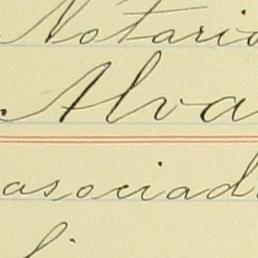 Notario
Alva
asociad